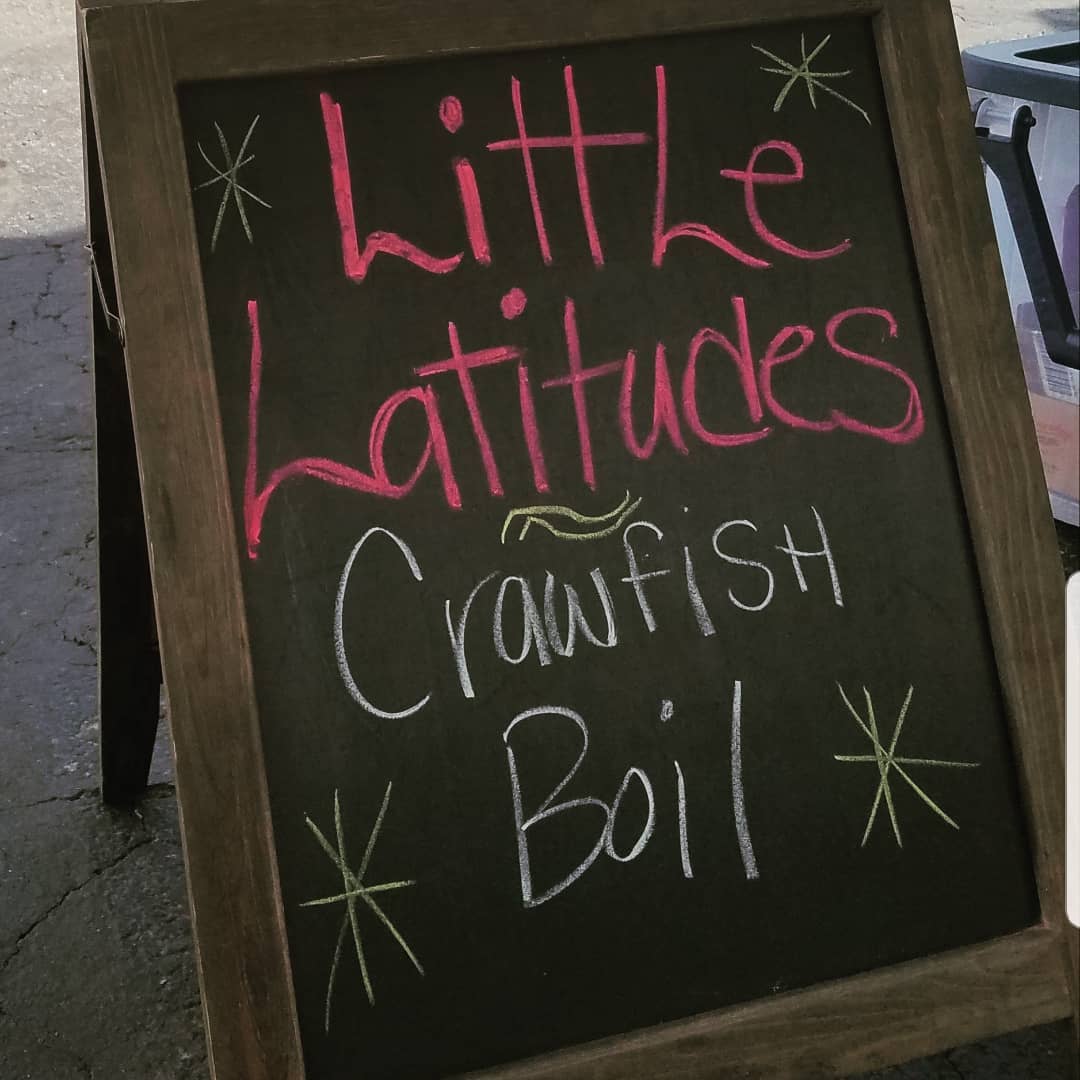 Little
Latitudes
Crawfish
Boil